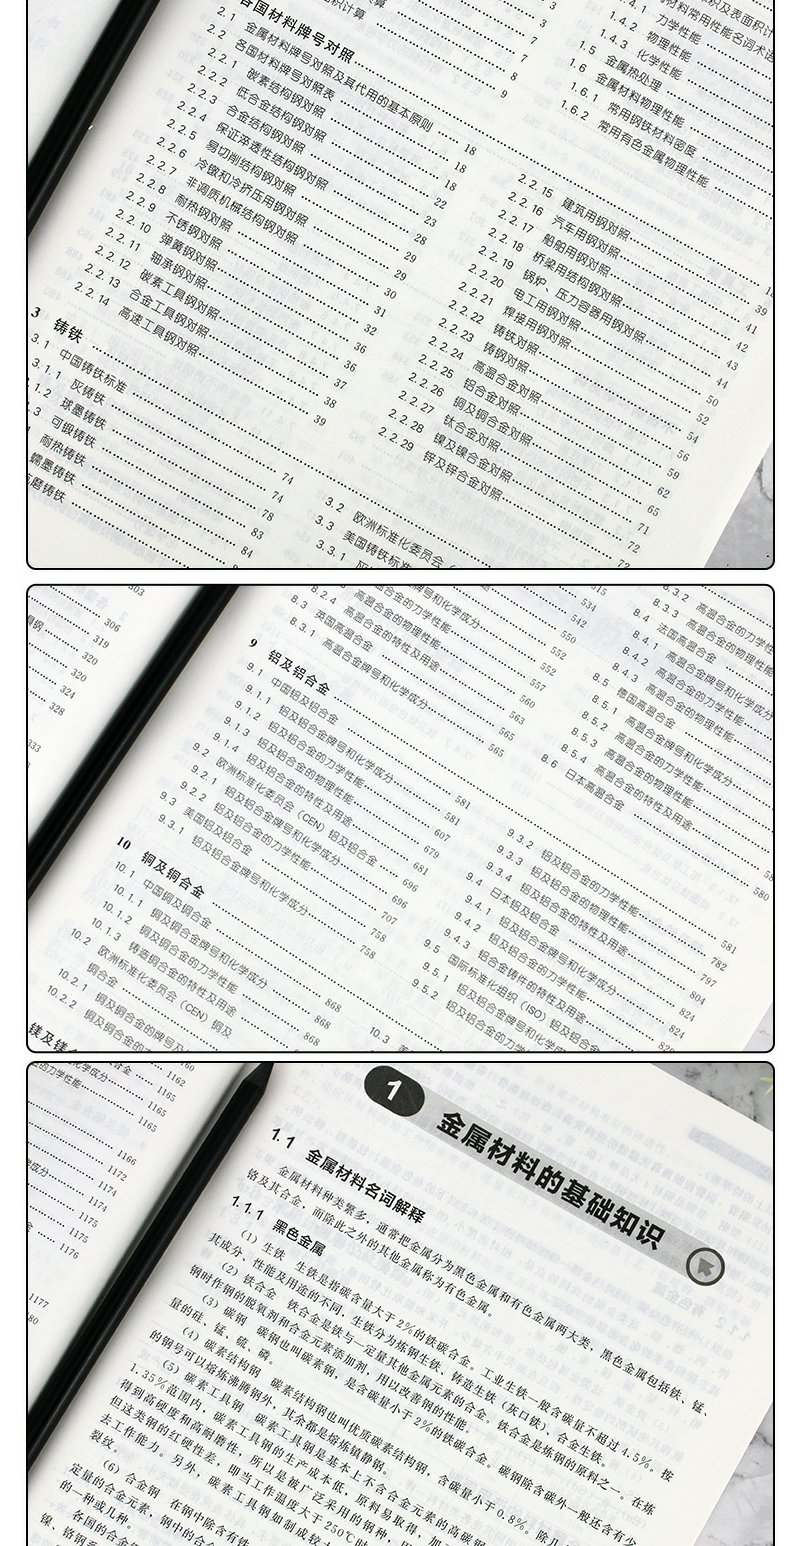 各国材料牌号对照
2.1 金属材料牌号对照及其代用的基本原则 18
2.2 各国材料牌号对照表 18
2.2.1 碳素结构钢对照 18
2.2.2 低合金结构钢对照 22
2.2.3 合金结构钢对照 23
2.2.4 保证淬透性结构钢对照 28
2.2.5 易切削结构钢对照 29
2.2.6 冷镦和冷挤压用钢对照 29
2.2.7 非调质机械结构钢对照 30
2.2.8 耐热钢对照 31
2.2.9 不锈钢对照 32
2.2.10 弹簧钢对照 36
2.2.11 轴承钢对照 36
2.2.12 碳素工具钢对照 37
2.2.13 合金工具钢对照 38
2.2.14 高速工具钢对照 39
3 铸铁
3.1 中国铸铁标准 74
3.1.1 灰铸铁 74
1.2 球墨铸铁 78
.3 可锻铸铁 83
耐热铸铁 84
蠕墨铸铁
1.4.1 力学性能
1.4.2 物理性能
1.4.3 化学性能
1.5 金属热处理
1.6 金属材料物理性能
1.6.1 常用钢铁材料密度
1.6.2 常用有色金属物理性能
2.2.15 建筑用钢对照 39
2.2.16 汽车用钢对照 41
2.2.17 船舶用钢对照 42
2.2.18 桥梁用结构钢对照 43
2.2.19 锅炉、压力容器用钢对照 44
2.2.20 电工用钢对照 50
2.2.21 焊接用钢对照 52
2.2.22 铸铁对照 54
2.2.23 铸钢对照 56
2.2.24 高温合金对照 59
2.2.25 铝合金对照 62
2.2.26 铜及铜合金对照 65
2.2.27 钛合金对照 71
2.2.28 镍及镍合金对照 72
2.2.29 锌及锌合金对照 72
3.2 欧洲标准化委员会
3.3 美国铸铁标准
3.3.1
303
306
319
320
320
324
328
333
8.2.4 高温合金的特性及用途 552
8.3 英国高温合金 557
8.3.1 高温合金牌号和化学成分
9 铝及铝合金
9.1 中国铝及铝合金 581
9.1.1 铝及铝合金牌号和化学成分 581
9.1.2 铝及铝合金的力学性能 607
9.1.3 铝及铝合金的物理性能 679
9.1.4 铝及铝合金的特性及用途 681
9.2 欧洲标准化委员会（CEN）铝及铝合金 696
9.2.1 铝及铝合金牌号和化学成分 696
9.2.2 铝及铝合金的力学性能 707
9.3 美国铝及铝合金 758
9.3.1 铝及铝合金牌号和化学成分 758
10 铜及铜合金
10.1 中国铜及铜合金 868
10.1.1 铜及铜合金牌号和化学成分 868
10.1.2 铜及铜合金的力学性能
10.1.3 铸造铜合金的特性及用途
10.2 欧洲标准化委员会（CEN）铜及
铜合金
10.2.1 铜及铜合金的牌号及
10.2.2 铜及铜合金的力
8.3.2 高温合金的力学性
8.3.3 高温合金的物理性能
8.4 法国高温合金
8.4.1 高温合金牌号和化学成分
8.4.2 高温合金的力学性能
8.4.3 高温合金的物理性能
8.5 德国高温合金
8.5.1 高温合金牌号和化学成分
8.5.2 高温合金的力学性能
8.5.3 高温合金的物理性能
8.5.4 高温合金的特性及用途
8.6 日本高温合金 580
9.3.2 铝及铝合金的力学性能 782
9.3.3 铝及铝合金的物理性能 797
9.3.4 铝及铝合金的特性及用途 804
9.4 日本铝及铝合金 824
9.4.1 铝及铝合金牌号和化学成分 824
9.4.2 铝及铝合金的力学性能
9.4.3 铝合金铸件的特性及用途
9.5 国际标准化组织（ISO）铝及铝合金
9.5.1 铝及铝合金牌号和化学成
9.5.2 铝及铝合金的力学性
10.3
1162
1165
1165
1166
1172
1174
1174
1175
1175
1176
1177
1 金属材料的基础知识
1.1 金属材料名词解释
金属材料种类繁多，通常把金属分为黑色金属和有色金属两大类，黑色金属包括铁、锰、
铬及其合金，而除此之外的其他金属称为有色金属。
1.1.1 黑色金属
（1）生铁 生铁是指碳含量大于2%的铁碳合金。工业生铁一般含碳量不超过4.5%。按
其成分、性能及用途的不同，生铁分为炼钢生铁、铸造生铁（灰口铁）、合金生铁。
（2）铁合金 铁合金是铁与一定量其他金属元素的合金。铁合金是炼钢的原料之一。在炼
钢时作钢的脱氧剂和合金元素添加剂，用以改善钢的性能。
（3）碳钢 碳钢也叫碳素钢，是含碳量小于2%的铁碳合金。碳钢除含碳外一般还含有少
量的硅、锰、硫、磷。
（4）碳素结构钢 碳素结构钢也叫优质碳素结构钢，含碳量小于0.8%。除几
的钢号可以熔炼沸腾钢外，其余都是熔炼镇静钢。
（5）碳素工具钢 碳素工具钢是基本上不含合金元素的高碳钢
1.35%范围内，碳素工具钢的生产成本低，原料易取得，加
得到高硬度和高耐磨性，所以是被广泛采用的钢种，
但这类钢的红硬性差，即当工作温度大于250℃时
去工作能力。另外，碳素工具钢如制成较大
裂纹。
（6）合金钢 在钢中除含有铁
定量的合金元素，钢中的合金
的一种或几种。
各国的合金
镍、铬钢系